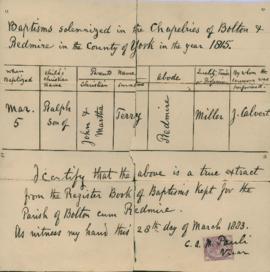 Baptisms solemnized in the Chapelries of Bolton &
Redmire in the County of York in the year 1815.
when Baptized
child's christian name
Parents Name
Christian
Surname
Abode
Quality, Trade or Profession
By whom the ceremony was performed
Mar. 5
Ralph son of
John & Martha
Terry
Redmire
Miller
J. Calvert
I certify that the above is a true extract
from the Register Book of Baptisms kept for the
Parish of Bolton cum Redmire.
As witness my hand this 28th day of March 1883.
C. A. M. Pauli
Vicar